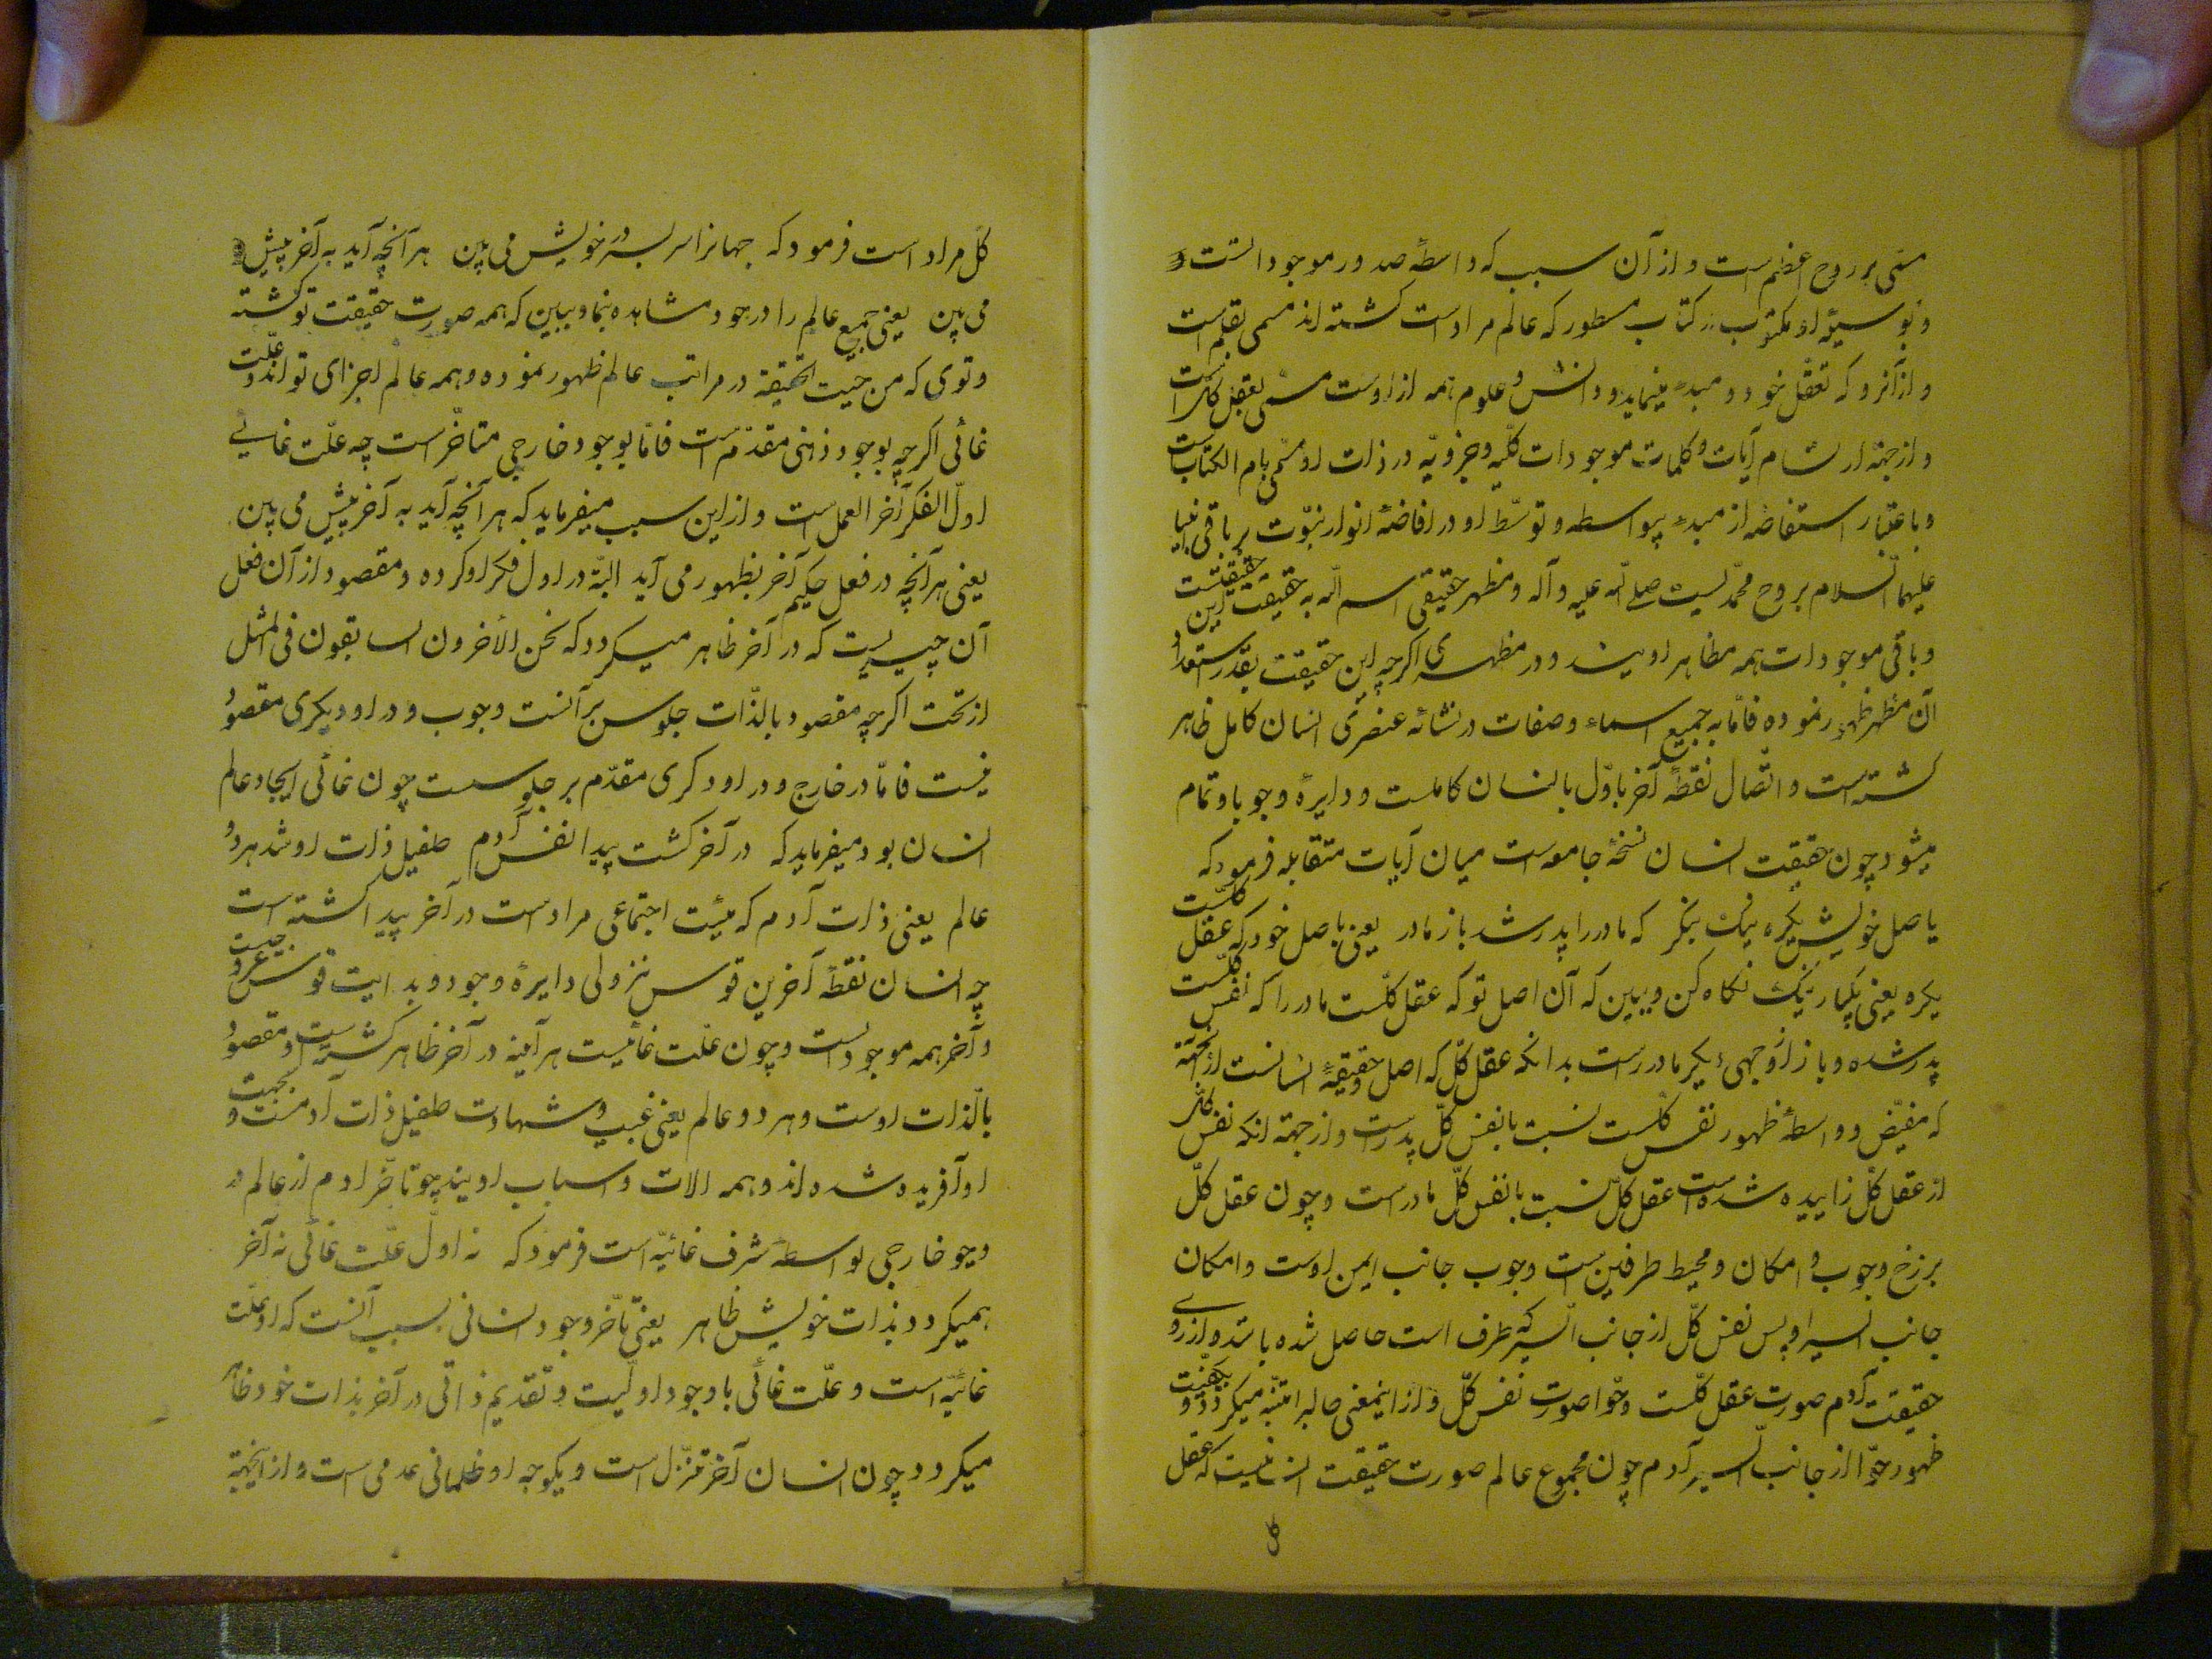 مسمی بروح اعظم است و از آن سبب که واسطهٔ صدور موجوداتست و
و بوسیلهٔ او مکتوب در کتاب مسطور که عالم مراد است کشته اند مسمی بقلم است
و از آنرو که تعقل خود و مبدء مینماید و دانش و علوم همه از اوست مسمی بعقل کل است
و از جهة ارتسام آیات و کلمات موجودات کلیه و جزویه در ذات او مسمی بام الکتاب است
و باعتبار استفاضه از مبدء بیواسطه و توسط او در افاضهٔ انوار نبوت بر باقی انبیا
علیهم السلام بروح محمدیست صلی الله علیه و آله و مظهر حقیقی اسم الله به حقیقت این حقیقتست
و باقی موجودات همه مظاهر اویند و در مظهری اکرچه این حقیقت بقدر استعداد
آن مظهر ظهور نموده فاما به جمیع اسماء و صفات در نشائه عنصری انسان کامل ظاهر
کشته است و اتصال نقطهٔ آخر باول بانسان کاملست و دایرهٔ وجود باو تمام
میشود چون حقیقت انسان نسخهٔ جامعه است میان آیات متقابله فرمود که
باصل خویش یکره نیک بنکر که مادر را پدر شد باز مادر یعنی باصل خود که عقل کلست
یکره یعنی یکبار نیک نکاه کن و ببین که آن اصل تو که عقل کلست مادر را که نفس کلست
پدر شده و باز از وجهی دیکر مادر است بدانکه عقل کل که اصل و حقیقهٔ انسانست از آنجهة
که مفیض و واسطهٔ ظهور نفس کلست نسبت بانفس کل پدر است و از جهة انکه نفس کل
از عقل کل زاییده شده است عقل کل نسبت بانفس کل مادر است و چون عقل کل
برزخ وجوب و امکان و محیط طرفین است وجوب جانب ایمن اوست و امکان
جانب ایسر او پس نفس کل از جانب ایسر که طرف است حاصل شده باشد و از روی
حقیقت آدم صورت عقل کلست و حوا صورت نفس کل و از اینمعنی طالب را متنبه میکردد و بکیفیت
ظهور حوا از جانب ایسر آدم چون مجموع عالم صورت حقیقت انسانیست که عقل
کل
کل مراد است فرمود که جهانرا سر بسر در خویش می بین هر آنچه آید به آخر پیش
می بین یعنی جمیع عالم را در خود مشاهده نما و ببین که همه صورت حقیقت تو کشته
و توی که من حیث الحقیقة در مراتب عالم ظهور نموده و همه عالم اجزای تو اند و علت
غائی اکرچه بوجود ذهنی مقدم است فاما بوجود خارجی متاخر است چه علت غایی
اول الفکر آخر العمل است و از این سبب میفرماید که هر آنچه آید به آخر پیش می بین
یعنی هر آنچه در فعل حکیم آخر بظهور می آید البته در اول فکر او کرده و مقصود از آن فعل
آن چیزیست که در آخر ظاهر میکردد که نحن الآخرون السابقون فی المثل
از تخت اکرچه مقصود بالذات جلوس بر آنست و جوب و در اودیکری مقصود
نیست فاما در خارج و در اودکری مقدم بر جلوسست چون غائی ایجاد عالم
انسان بود میفرماید که در آخر کشت پیدا نفس آدم طفیل ذات او شد هر دو
عالم یعنی ذات آدم که هیئت اجتماعی مراد است در آخر پیدا کشته است
چه انسان نقطهٔ آخرین قوس نزولی دایرهٔ وجود و بدایت قوس عروجیست
و آخر همه موجود است و چون علت غائیست هر آینه در آخر ظاهر کشته است و مقصود
بالذات اوست و هر دو عالم یعنی غیب و شهادت طفیل ذات آدمست و بجهت
او آفریده شده اند و همه الات و اسباب اویند چو تاخر ادم از عالم در
وجود خارجی بواسطه شرف غائیه است فرمود که نه اول علت غائی نه آخر
همیکردد بذات خویش ظاهر یعنی تاخر وجود انسانی بسبب آنست که او علت
غائیه است و علت غائی باوجود اولیت و تقدیم ذاتی در آخر بذات خود ظاهر
میکردد چون انسان آخر تنزل است و یکوجه او ظلمانی عدمی است و از اینجهة